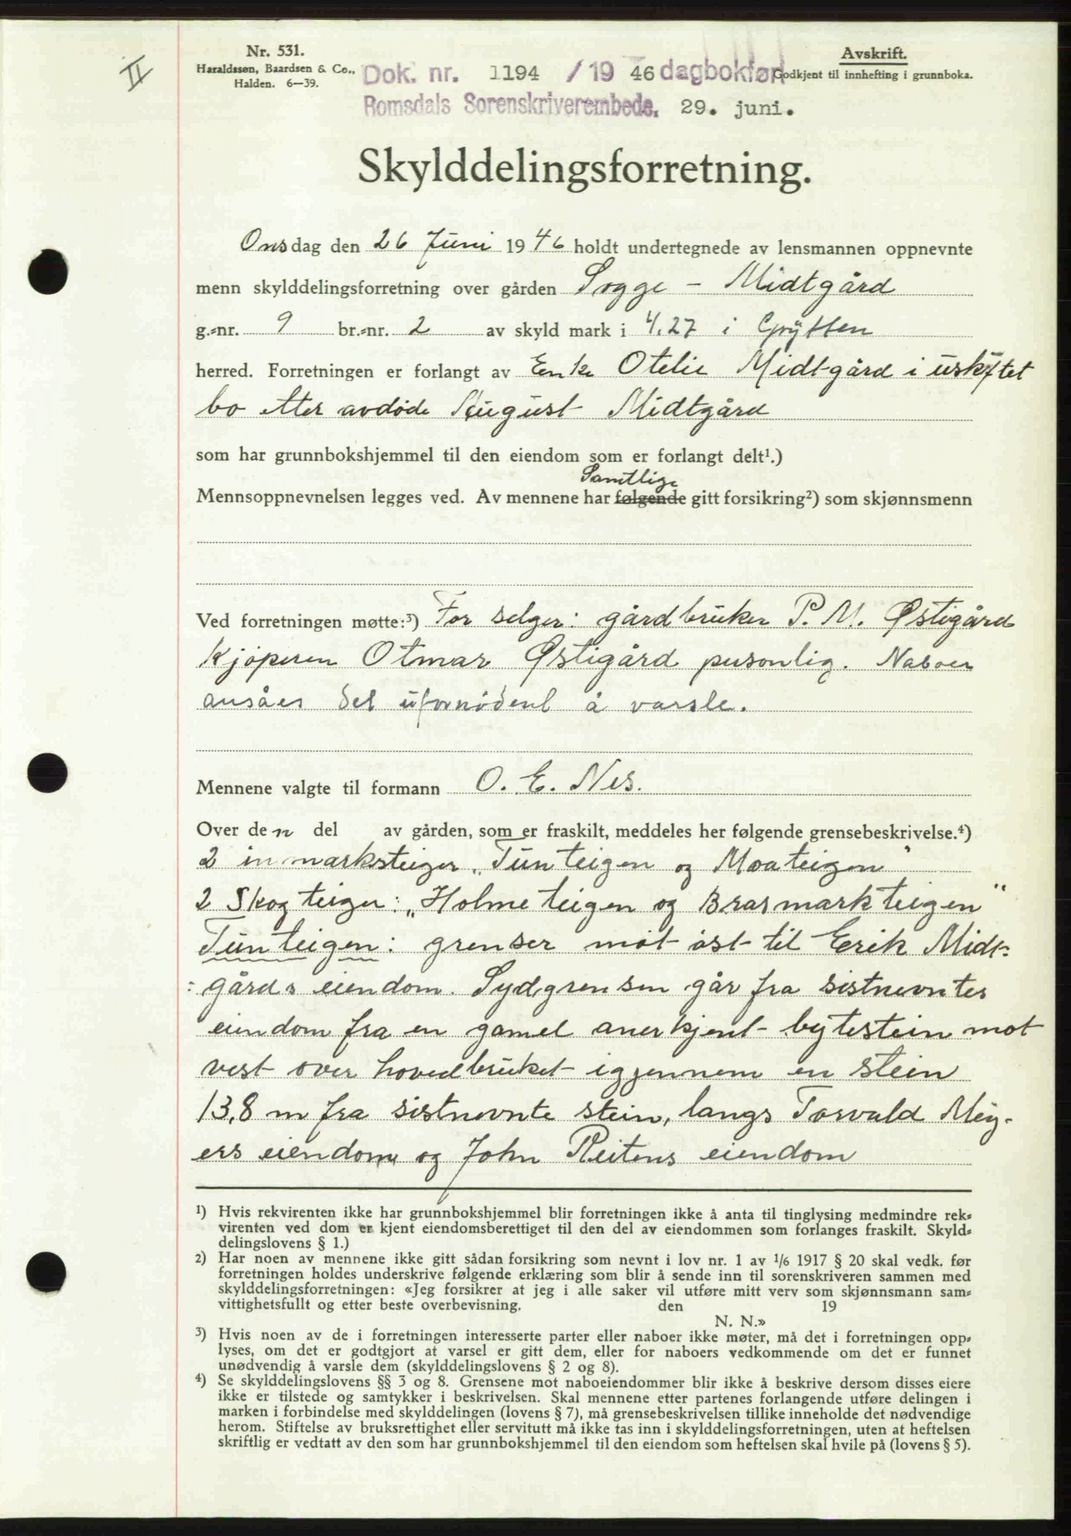 II
Nr. 531.
Haraldssøn, Baardsen & Co.,
Halden. 6—39.
Avskrift.
Godkjent til innhefting i grunnboka.
Dok. nr. 1194 /19 46 dagbokført
Romsdals Sorenskriverembede. 29. juni.
Skylddelingsforretning.
Onsdag den 26 Juni 1946 holdt undertegnede av lensmannen oppnevnte
menn skylddelingsforretning over gården Sogge - Midtgård
g.-nr. 9 br.-nr. 2 av skyld mark i 4.27 i Grytten
herred. Forretningen er forlangt av Enke Otelie Midtgård i uskiftet
bo etter avdøde August Midtgård
som har grunnbokshjemmel til den eiendom som er forlangt delt¹.)
Samtlige
Mennsoppnevnelsen legges ved. Av mennene har følgende gitt forsikring²) som skjønnsmenn
Ved forretningen møtte:³) For selger: gårdbruker P. M. Østigård
Kjøperen Otmar Østigård personlig. Naboer
ansåes det ufornødent å varsle.
Mennene valgte til formann O. E. Nes.
Over den del av gården, som er fraskilt, meddeles her følgende grensebeskrivelse.⁴)
2 inmarksteiger „Tunteigen og Moateigen"
2 Skogteiger: „Holmeteigen og Brasmarkteigen"
Tunteigen: grenser mot øst til Erik Midt-
:gårds eiendom. Sydgrensen går fra sistnevntes
eiendom fra en gamel anerkjent bytestein mot
vest over hovedbruket igjennem en stein
13,8 m fra sistnevnte stein, langs Torvald Mey-
ers eiendom og John Reitens eiendom
¹) Hvis rekvirenten ikke har grunnbokshjemmel blir forretningen ikke å anta til tinglysing medmindre rek-
virenten ved dom er kjent eiendomsberettiget til den del av eiendommen som forlanges fraskilt. Skyld-
delingslovens § 1.)
²) Har noen av mennene ikke gitt sådan forsikring som nevnt i lov nr. 1 av 1/6 1917 § 20 skal vedk. før
forretningen holdes underskrive følgende erklæring som blir å sende inn til sorenskriveren sammen med
skylddelingsforretningen: «Jeg forsikrer at jeg i alle saker vil utføre mitt verv som skjønnsmann sam-
vittighetsfullt og etter beste overbevisning. den 19
N. N.»
³) Hvis noen av de i forretningen interesserte parter eller naboer ikke møter, må det i forretningen opp-
lyses, om det er godtgjort at varsel er gitt dem, eller for naboers vedkommende om det er funnet
unødvendig å varsle dem (skylddelingslovens § 2 og 8).
⁴) Se skylddelingslovens §§ 3 og 8. Grensene mot naboeiendommer blir ikke å beskrive dersom disses eiere
ikke er tilstede og samtykker i beskrivelsen. Skal mennene etter partenes forlangende utføre delingen i
marken i forbindelse med skylddelingen (lovens § 7), må grensebeskrivelsen tillike inneholde det nødvendige
herom. Stiftelse av bruksrettighet eller servitutt må ikke tas inn i skylddelingsforretningen, uten at heftelsen
skriftlig er vedtatt av den som har grunnbokshjemmel til den eiendom som heftelsen skal hvile på (lovens § 5).